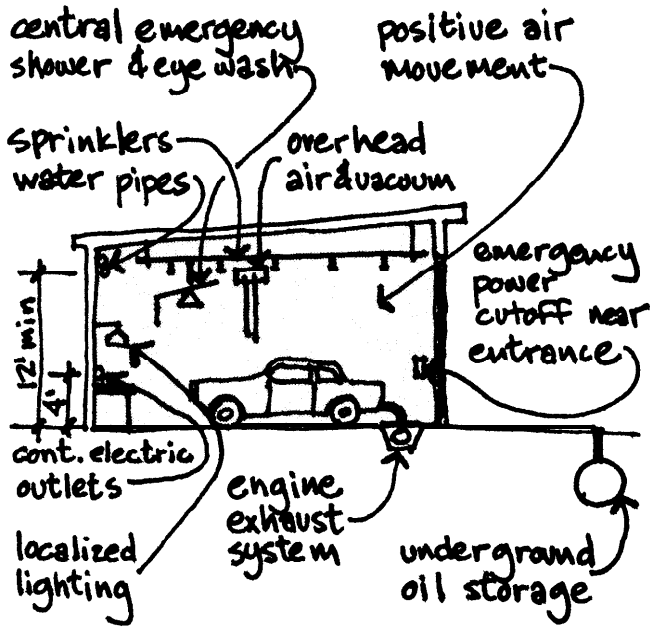 central emergency
shower & eye wash
positive air
movement
sprinklers
water pipes
overhead
air & vacuum
emergency
power
cutoff near
entrance
12' min
4'
cont. electric
outlets
localized
lighting
engine
exhaust
system
underground
oil storage